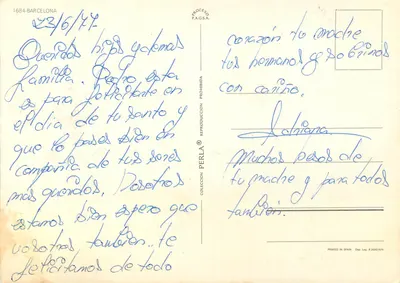 1694 BARCELONA
23/6/77
Queridos hijos y demas
familia. Pedro, esta
es para felicitarte en
el dia de tu santo y
que lo pases bien en
compañia de tus seres
mas queridos. Nosotros
estamos bien espero que
vosotros, tambien. te
felicitamos de todo
COLECCION PERLA® REPRODUCCION PROHIBIDA
corazón tu madre
tus hermanos y sobrinos
con cariño.
Adriana
Muchos besos de
tu madre y para todos
tambien.